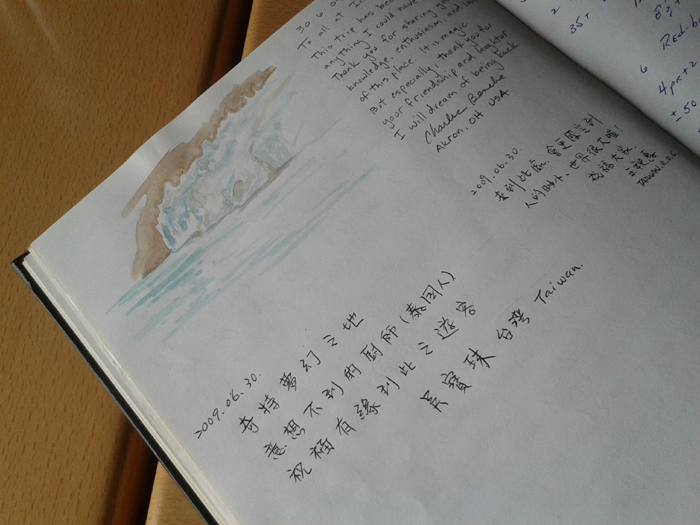 30 6 0
To all at I
This trip has been
anything I could have
Thank you for sharing your
knowledge, enthusiasm, and love
of this place. It is magic.
But especially thank you for
your friendship and laughter.
I will dream of being back
Charlie
Akron, OH USA
2009.06.30.
來到此處,會更感受到
人的渺小、世界很大喔!
祝福大家
2009.06.30.
奇特夢幻之地
意想不到的廚師(泰国人)
祝福有緣到此之遊客
吳寶珠 台灣 Taiwan.
2.
35+
6 Red
4 pm+2
±50